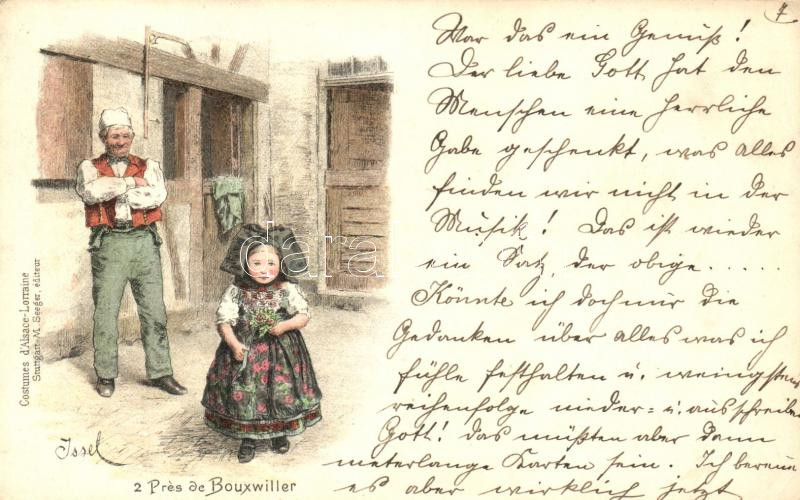 7
War das ein Genuß!
Der liebe Gott hat den
Menschen eine herrliche
Gabe geschenkt, was alles
finden wir nicht in der
Musik! Das ist wieder
ein Satz, der obige.....
Könnte ich doch nur die
Gedanken über alles was ich
fühle festhalten u. weingstens
reihenfolge nieder= u. ausschreiben
Gott! das müßten aber dann
meterlange Karten sein. Ich
es aber wirklich jetzt
Costumes d'Alsace-Lorraine
Stuttgart, M. Seeger, éditeur
darabanth
Issel
2 Près de Bouxwiller